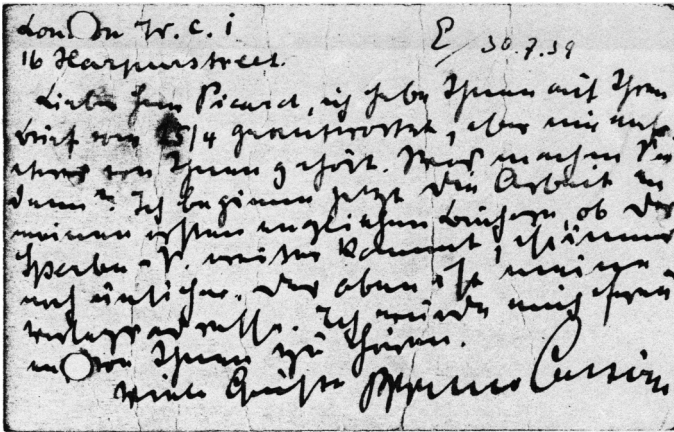 London W.C. 1
16 Harpurstreet.
E/ 30.7.39
Lieber Herr Picard, ich habe Ihnen auf Ihren
Brief vom 15/4 geantwortet, aber nie mehr
etwas von Ihnen gehört. Was machen Sie
denn? Ich beginne jetzt die Arbeit an
meinen ersten englischen Büchern, ob der
weiter kommt, ist immer
noch Das oben ist meine
Verlagsadresse. Ich würde mich freuen
von Ihnen zu hören.
Viele Grüsse